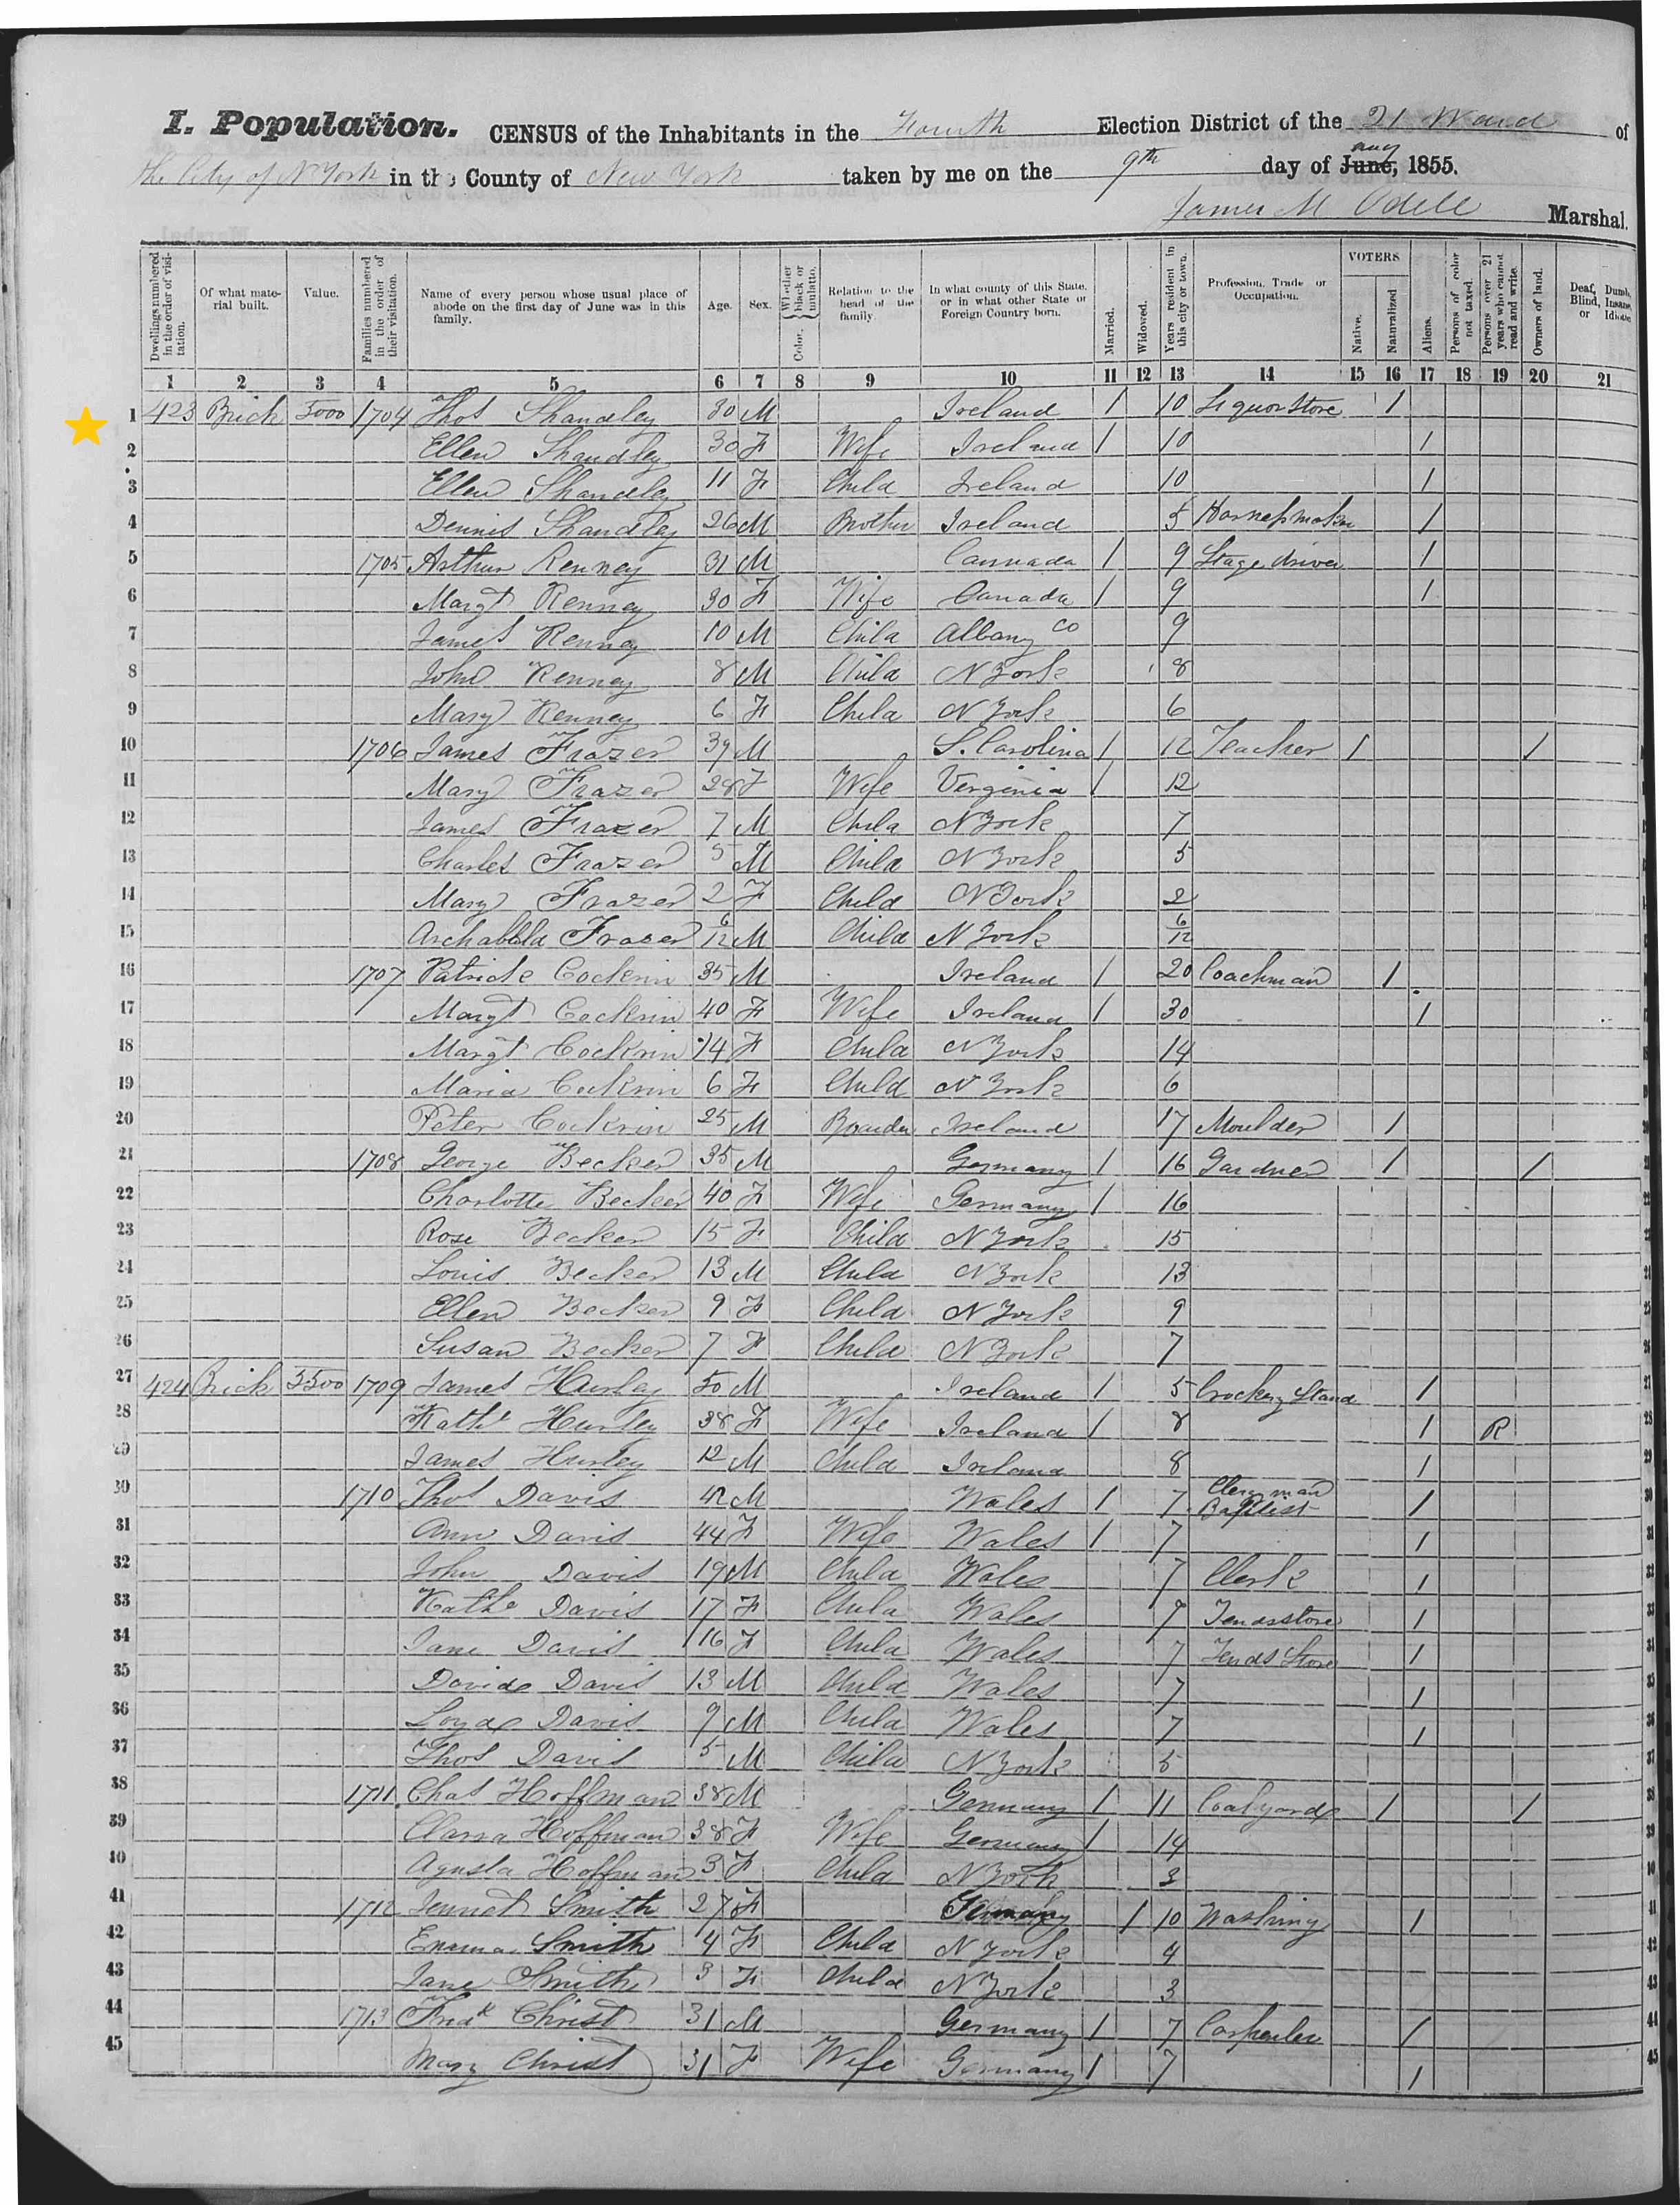 I. Population. CENSUS of the Inhabitants in the Fourth Election District of the 21 Ward of
the City of N York in the County of New York taken by me on the 9th day of June, Aug 1855.
James M Odell Marshal.
Dwellings numbered in the order of visitation. Of what material built. Value. Families numbered in the order of their visitation. Name of every person whose usual place of abode on the first day of June was in this family. Age. Sex. Color. Whether black or mulatto. Relation to the head of the family. In what county of this State, or in what other State or Foreign Country born. Married. Widowed. Years resident in this city or town. Profession, Trade or Occupation. VOTERS Native. Naturalized Aliens. Persons of color not taxed. Persons over 21 years who cannot read and write. Owners of land. Deaf, Dumb, Blind, Insane, or Idiotic
1 2 3 4 5 6 7 8 9 10 11 12 13 14 15 16 17 18 19 20 21
1 423 Brick 5000 1704 Thos Shandley 30 M Ireland 1 10 Liquor Store 1
2 Ellen Shandley 30 F Wife Ireland 1 10 1
3 Ellen Shandley 11 F Child Ireland 10 1
4 Dennis Shandley 26 M Brother Ireland 5 Harness maker 1
5 1705 Arthur Renney 31 M Cannada 1 9 Stage driver 1
6 Margt Renney 30 F Wife Canada 1 9 1
7 James Renney 10 M Child Albany Co 9
8 John Renney 8 M Child N York 8
9 Mary Renney 6 F Child N York 6
10 1706 James Frazer 39 M S. Carolina 1 12 Teacher 1 1
11 Mary Frazer 28 F Wife Verginia 1 12
12 James Frazer 7 M Child N York 7
13 Charles Frazer 5 M Child N York 5
14 Mary Frazer 2 F Child N York 2
15 Archabbla Frazer 6/12 M Child N York 6/12
16 1707 Patrick Cockrin 35 M Ireland 1 20 Coachman 1
17 Margt Cockrin 40 F Wife Ireland 1 30 1
18 Margt Cockrin 14 F Child N York 14
19 Maria Cockrin 6 F Child N York 6
20 Peter Cockrin 25 M Boarder Ireland 17 Moulder 1
21 1708 George Becker 35 M Germany 1 16 Gardner 1 1
22 Charlotte Becker 40 F Wife Germany 1 16
23 Rose Becker 15 F Child N York 15
24 Louis Becker 13 M Child N York 13
25 Ellen Becker 9 F Child N York 9
26 Susan Becker 7 F Child N York 7
27 424 Brick 3500 1709 James Hurley 50 M Ireland 1 5 Crockery Stand 1
28 Kathe Hurley 38 F Wife Ireland 1 8 1 R
29 James Hurley 12 M Child Ireland 8 1
30 1710 Thos Davis 42 M Wales 1 7 Clergman Baptist 1
31 Ann Davis 44 F Wife Wales 1 7 1
32 John Davis 19 M Child Wales 7 Clerk 1
33 Kathe Davis 17 F Child Wales 7 Tends store 1
34 Jane Davis 16 F Child Wales 7 Tends Store 1
35 David Davis 13 M Child Wales 7 1
36 Loyd Davis 9 M Child Wales 7 1
37 Thos Davis 5 M Child N York 5
38 1711 Chas Hoffman 38 M Germany 1 11 Coalyard 1 1
39 Clarra Hoffman 38 F Wife Germany 1 14
40 Agusta Hoffman 3 F Child N York 3
41 1712 Jennet Smith 27 F Germany 1 10 Washing 1
42 Emma Smith 4 F Child N York 4
43 Jane Smith 3 F Child N York 3
44 1713 Fredk Christ 31 M Germany 1 7 Carpenter 1
45 Mary Christ 31 F Wife Germany 1 7 1